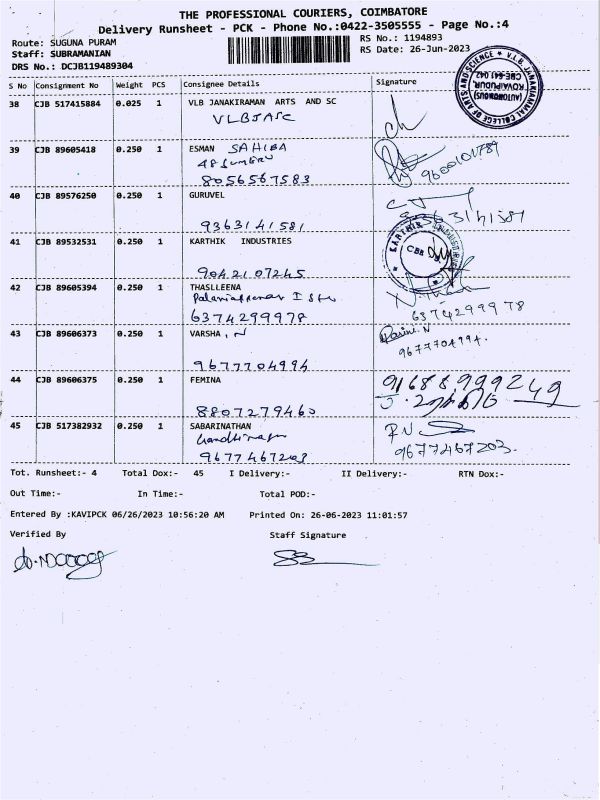 THE PROFESSIONAL COURIERS, COIMBATORE
Delivery Runsheet - PCK - Phone No.:0422-3505555 - Page No.:4
Route: SUGUNA PURAM
Staff: SUBRAMANIAN
DRS No.: DCJB119489304
RS No.: 1194893
RS Date: 26-Jun-2023
S No Consignment No Weight PCS Consignee Details Signature
38 CJB 517415884 0.025 1 VLB JANAKIRAMAN ARTS AND SC
VLBJASC
39 CJB 89605418 0.250 1 ESMAN SAHIBA
8056567583
9600101789
40 CJB 89576250 0.250 1 GURUVEL
9363141581
9363141581
41 CJB 89532531 0.250 1 KARTHIK INDUSTRIES
9042107245
42 CJB 89605394 0.250 1 THASLLEENA
6374299978
6374299978
43 CJB 89606373 0.250 1 VARSHA .N
9677704994
9677704994.
44 CJB 89606375 0.250 1 FEMINA
8807279460
91688999249
45 CJB 517382932 0.250 1 SABARINATHAN
Gandhinagar
9677467203
9677467203.
Tot. Runsheet:- 4 Total Dox:- 45 I Delivery:- II Delivery:- RTN Dox:-
Out Time:- In Time:- Total POD:-
Entered By :KAVIPCK 06/26/2023 10:56:20 AM Printed On: 26-06-2023 11:01:57
Verified By Staff Signature